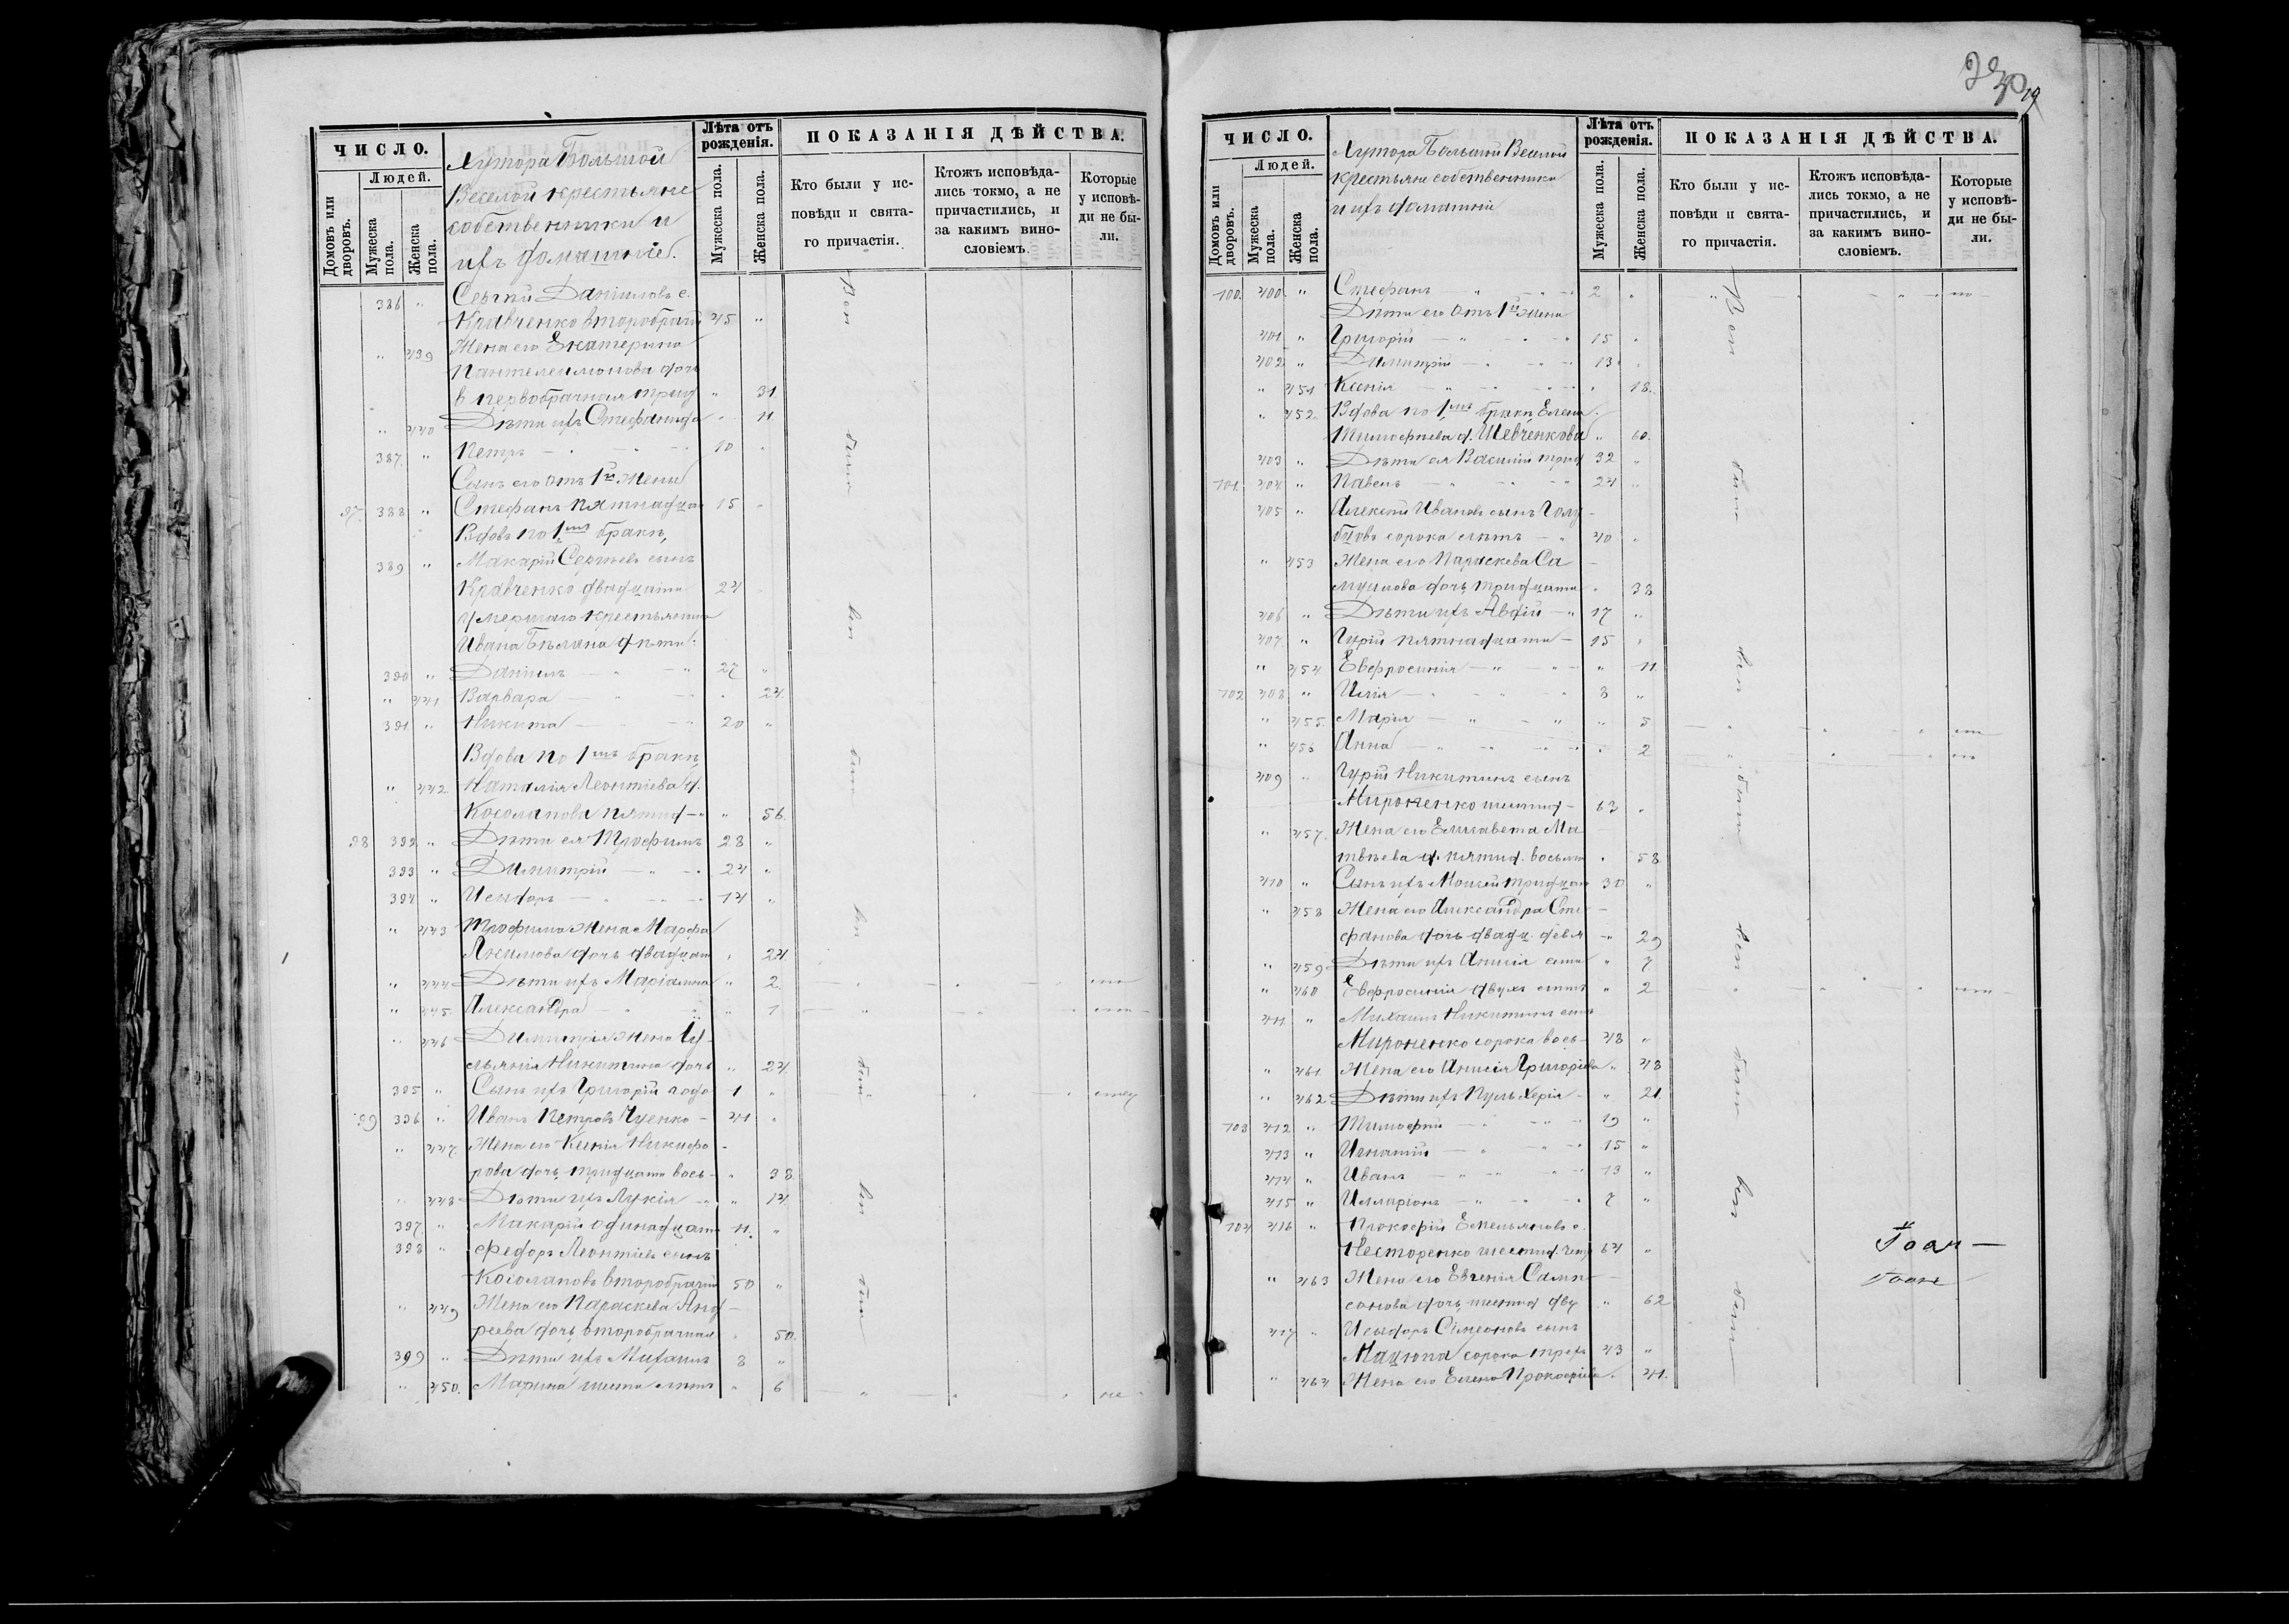 ЧИСЛО.
Людей.
Домовъ или дворовъ.
Мужеска пола.
Женска пола.
Хутора Большой
Веселой крестьяне
собственники и
ихъ домашніе.
Лѣта отъ рожденія.
Мужеска пола.
Женска пола.
ПОКАЗАНІЯ ДѢЙСТВА.
Кто были у ис-
повѣди и свята-
го причастія.
Ктожъ исповѣда-
лись токмо, а не
причастились, и
за какимъ вино-
словіемъ.
Которые
у исповѣ-
ди не бы-
ли.
386 " Сергій Даніиловъ с.
Кравченко второбрачн 45 "
" 439 Жена его Екатерина
Пантелеимонова доч
в первобрачная трид " 31
" 440 Дѣти ихъ Стефанида " 11
387. " Петръ 10 "
Сынъ его отъ 1й жены
97. 388 " Стефанъ пятнадца 15 "
Вдовъ по 1мъ бракѣ,
389 " Макарій Сергіевъ сынъ
Кравченко двадцати 24
Умершаго крестьянина
Ивана Бѣлана дѣти:
390 " Даніилъ 27 "
" 441 Варвара " 24.
391 " Никита 20 "
Вдова по 1мъ бракѣ
" 442 Наталія Леонтіева д.
Косолапова пятид " 56.
98 392 " Дѣти ея Трофимъ 28 "
393 " Димитрій 24 "
394 " Исидоръ 14 "
" 443 Трофима жена Марфа
Якимова дочь двадцат " 24.
" 444 Дѣти ихъ Маріамна " 2.
" 445. Александра " 1
" 446 Димитрія жена Іу-
льянія Никитина дочь " 24.
395 " Сынъ ихъ Григорій года 1 "
99 396 " Иванъ Петровъ Чуенко 41 "
" 447. Жена его Ксенія Никифо-
рова дочь тридцати вось- " 38
" 448 Дѣти ихъ Лукія " 14.
397. " Макарій одинадцати 11. "
398 " Федоръ Леонтіевъ сынъ
Косолаповъ второбрачн 50 "
" 449 Жена его Параскева Анд-
реева дочь второбрачная " 50.
399 " Дѣти ихъ Михаилъ 8 "
" 450. Марина шести лѣтъ " 6
19
ЧИСЛО.
Людей.
Домовъ или дворовъ.
Мужеска пола.
Женска пола.
Хутора Большой Веселой
крестьяне собственники
и ихъ домашніе
Лѣта отъ рожденія.
Мужеска пола.
Женска пола.
ПОКАЗАНІЯ ДѢЙСТВА.
Кто были у ис-
повѣди и свята-
го причастія.
Ктожъ исповѣда-
лись токмо, а не
причастились, и
за какимъ вино-
словіемъ.
Которые
у исповѣ-
ди не бы-
ли.
100. 400. " Стефанъ 2 "
Дѣти его отъ 1й жены
401 " Григорій 15 "
402 " Димитрій 13 "
" 451 Ксенія " 18.
" 452. Вдова по 1мъ бракѣ Елена
Тимофеева д. Шевченкова " 60.
403 " Дѣти ея Василій трид 32 "
101. 404 " Павелъ 24 "
405 " Алексій Ивановъ сынъ Голу-
бцовъ сорока лѣтъ 40 "
" 453 Жена его Параскева Са
муилова дочь тридцати " 38
406 " Дѣти ихъ Авдій 17 "
407 " Гурій пятнадцати 15 "
" 454 Евфросинія " 11.
102 408 " Илія 8 "
" 455. Марія " 5
" 456 Анна " 2
409 " Гурій Никитинъ сынъ
Мироненко шестид 63 "
" 457. Жена его Елисавета Ма
твѣева д. пятид. восьми " 58.
410 " Сынъ ихъ Моисей тридцати 30 "
" 458 Жена его Александра Сте-
фанова дочь двадц. девя " 29
" 459 Дѣти ихъ Анисія семи " 7
" 460 Евфросинія двухъ лѣтъ " 2
411 " Михаилъ Никитинъ сынъ
Мироненко сорока вось- 48 "
" 461 Жена его Анисія Григоріева " 48
" 462. Дѣти ихъ Пульхерія " 21.
103 412 " Тимофей 19 "
413 " Игнатій 15 "
414 " Иванъ 13 "
415 " Илларіонъ 7 "
104 416 " Прокофій Емельяновъ с.
Несторенко шестид. четы 64 "
" 463 Жена его Евгенія Самп-
сонова дочь шестид дву " 62
417 " Исидоръ Симеоновъ сынъ
Мацюпа сорока трехъ 43 "
" 464 Жена его Елена Прокофіева " 41.